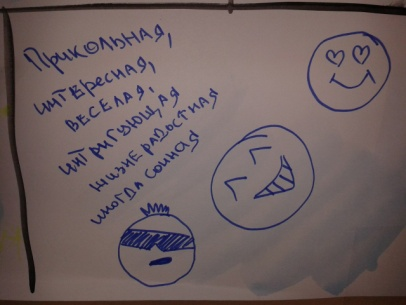 ПРИКОЛЬНАЯ,
ИНТЕРЕСНАЯ,
ВЕСЕЛАЯ,
ИНТРИГУЮЩАЯ
ЖИЗНЕРАДОСТНАЯ
ИНОГДА СОННАЯ